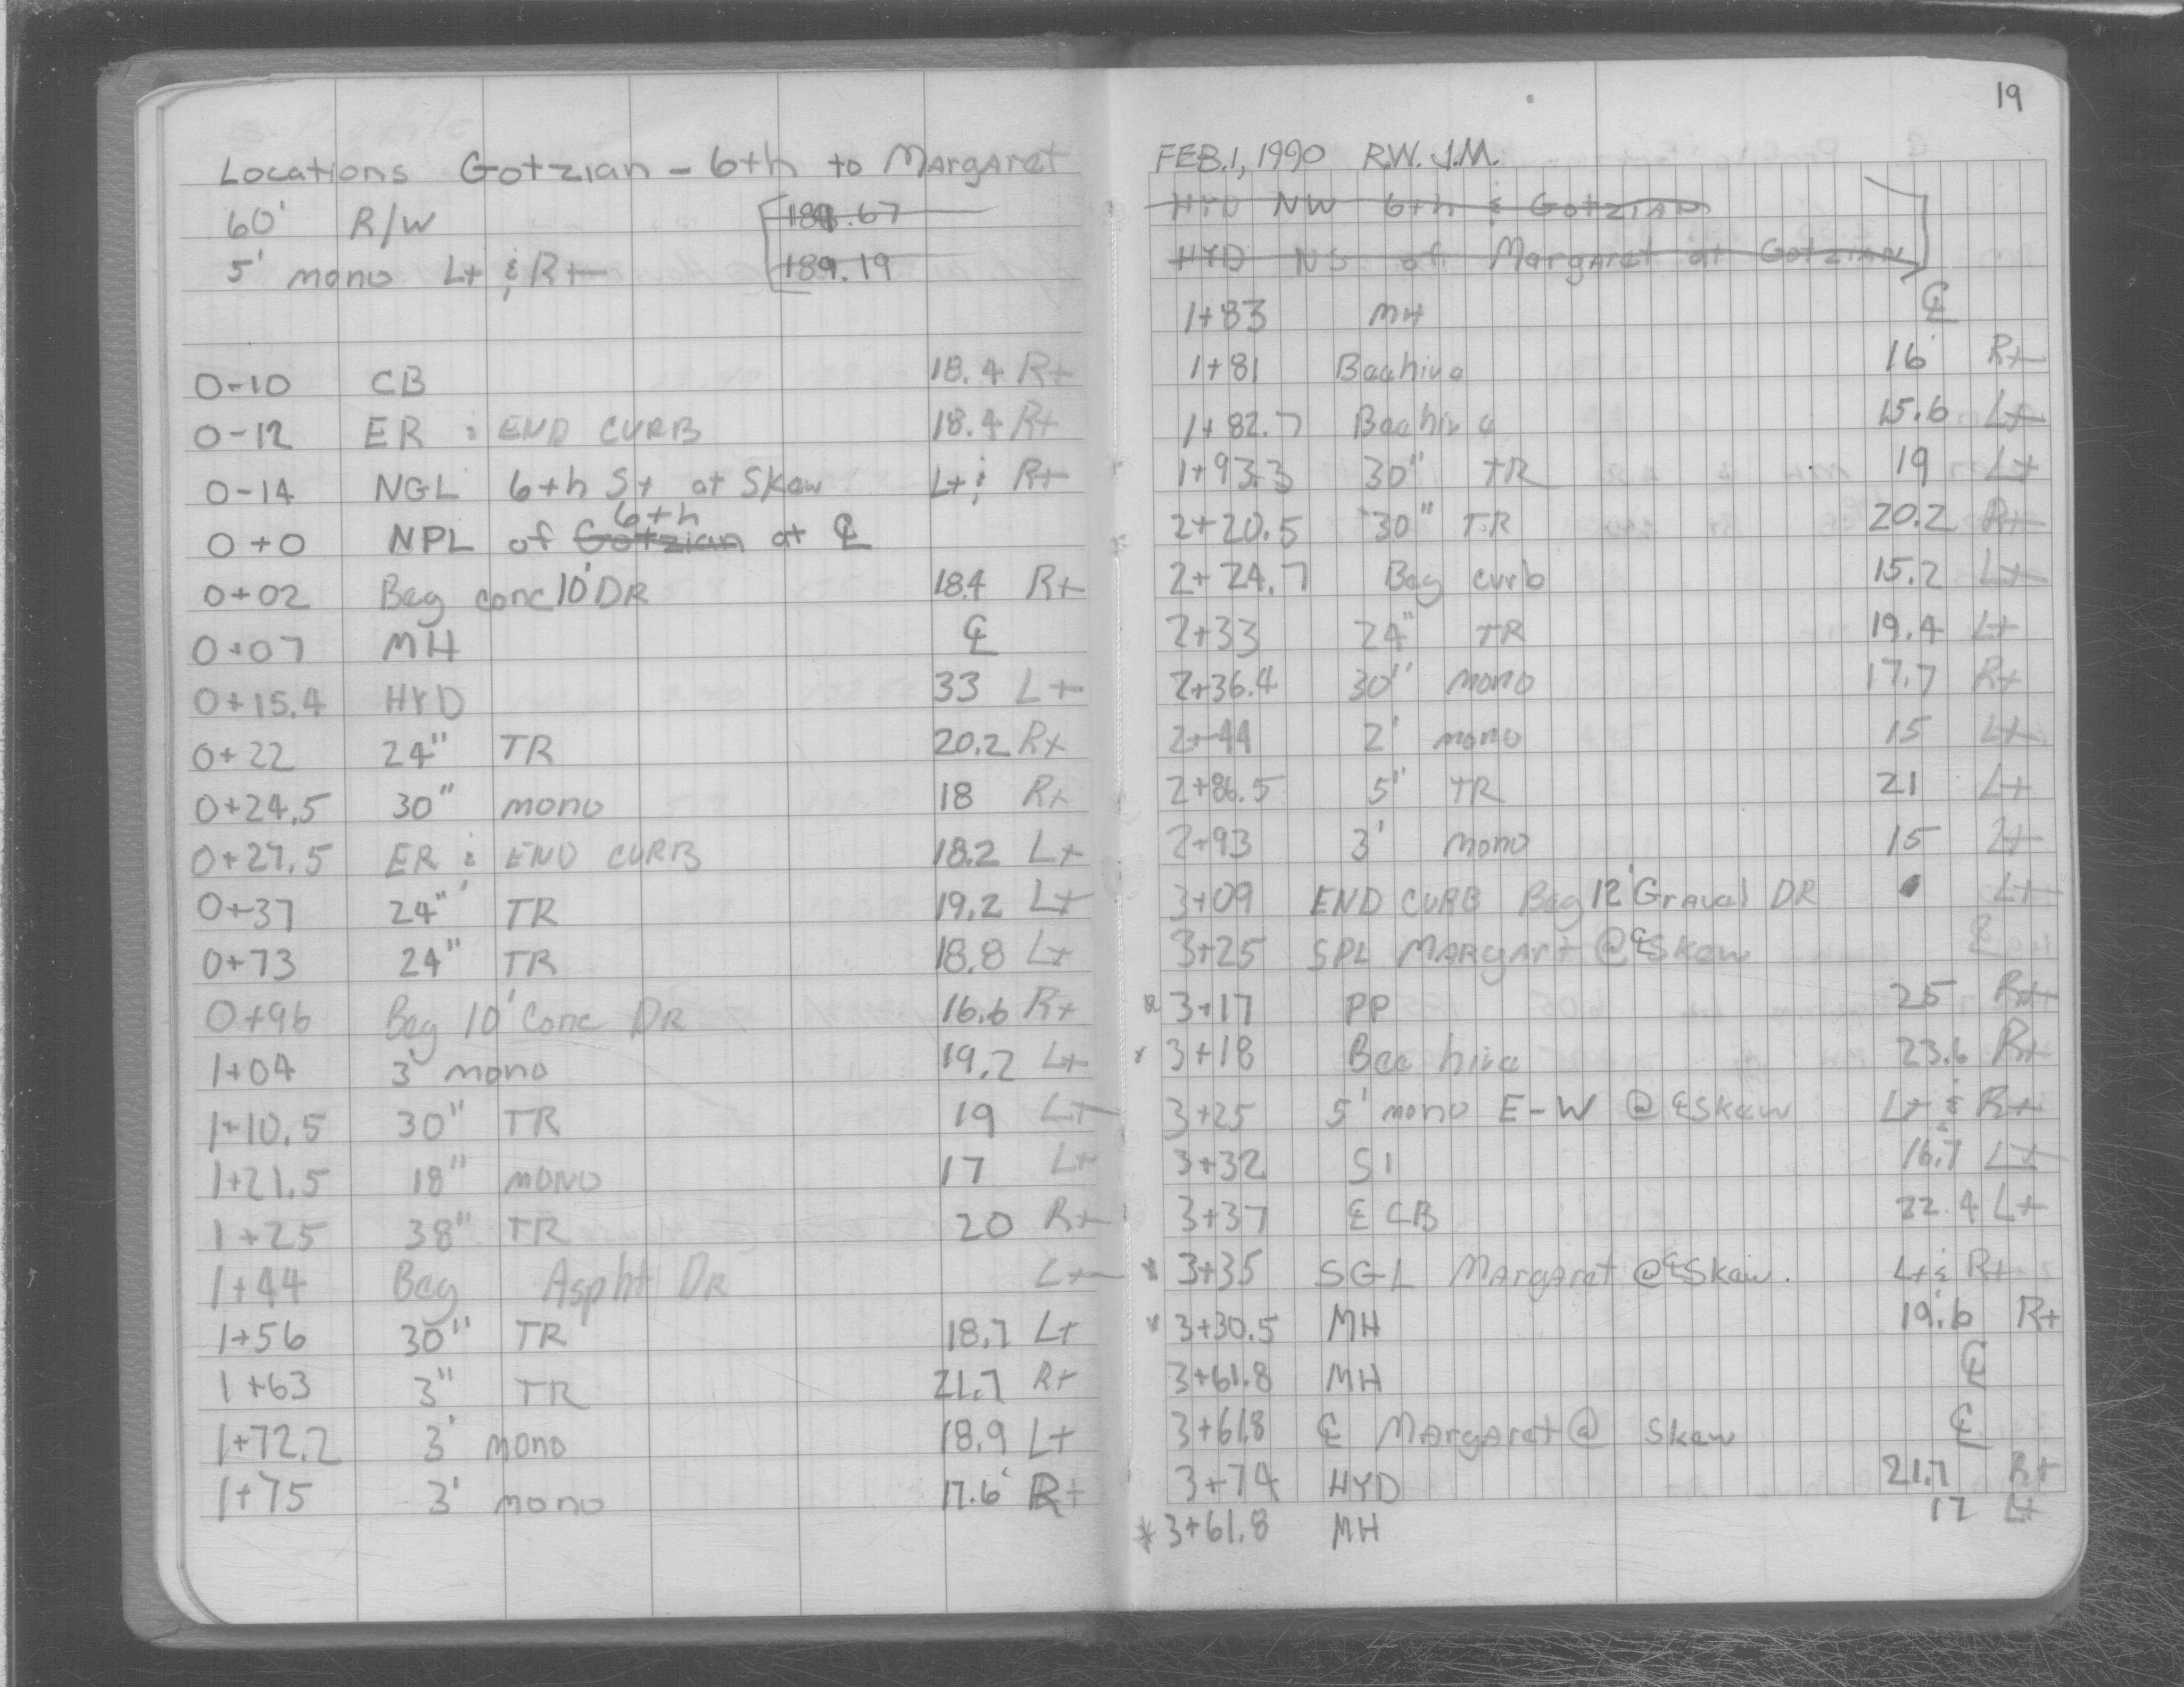 Locations Gotzian - 6th to Margaret
60' R/W 184.67
5' mono Lt & Rt 189.19
0-10 CB 18.4 Rt
0-12 ER & END CURB 18.4 Rt
0-14 NGL 6th St at Skew Lt & Rt
6th
0+0 NPL of Gotzian at ℄
0+02 Beg conc 10' DR 18.4 Rt
0+07 MH ℄
0+15.4 HYD 33 Lt
0+22 24" TR 20.2 Rt
0+24.5 30" mono 18 Rt
0+27.5 ER & END CURB 18.2 Lt
0+37 24" TR 19.2 Lt
0+73 24" TR 18.8 Lt
0+96 Beg 10' Conc DR 16.6 Rt
1+04 3' mono 19.2 Lt
1+10.5 30" TR 19 Lt
1+21.5 18" mono 17 Lt
1+25 38" TR 20 Rt
1+44 Beg Aspht DR Lt
1+56 30" TR 18.7 Lt
1+63 3" TR 21.7 Rt
1+72.2 3' mono 18.9 Lt
1+75 3' mono 17.6' Rt
19
FEB. 1, 1990 R.W. J.M.
HYD NW 6th & Gotzian
HYD NS of Margaret at Gotzian
1+83 MH ℄
1+81 Beehive 16' Rt
1+82.7 Beehive 15.6 Lt
1+93.3 30" TR 19 Lt
2+20.5 30" TR 20.2 Rt
2+24.7 Beg curb 15.2 Lt
2+33 24" TR 19.4 Lt
2+36.4 30" mono 17.7 Rt
2+44 2' mono 15 Lt
2+86.5 5" TR 21 Lt
2+93 3' mono 15 Lt
3+09 END CURB Beg 12' Gravel DR Lt
3+25 SPL Margart @ ℄ Skew ℄
* 3+17 PP 25 Rt
* 3+18 Bee hive 23.6 Rt
3+25 5' mono E-W @ ℄ Skew Lt & Rt
3+32 SI 16.7 Lt
3+37 ℄ CB 22.4 Lt
* 3+35 SGL Margaret @ ℄ Skew. Lt & Rt
* 3+30.5 MH 19.6 Rt
3+61.8 MH ℄
3+61.8 ℄ Margaret @ Skew ℄
3+74 HYD 21.7 Rt
* 3+61.8 MH 17 Lt